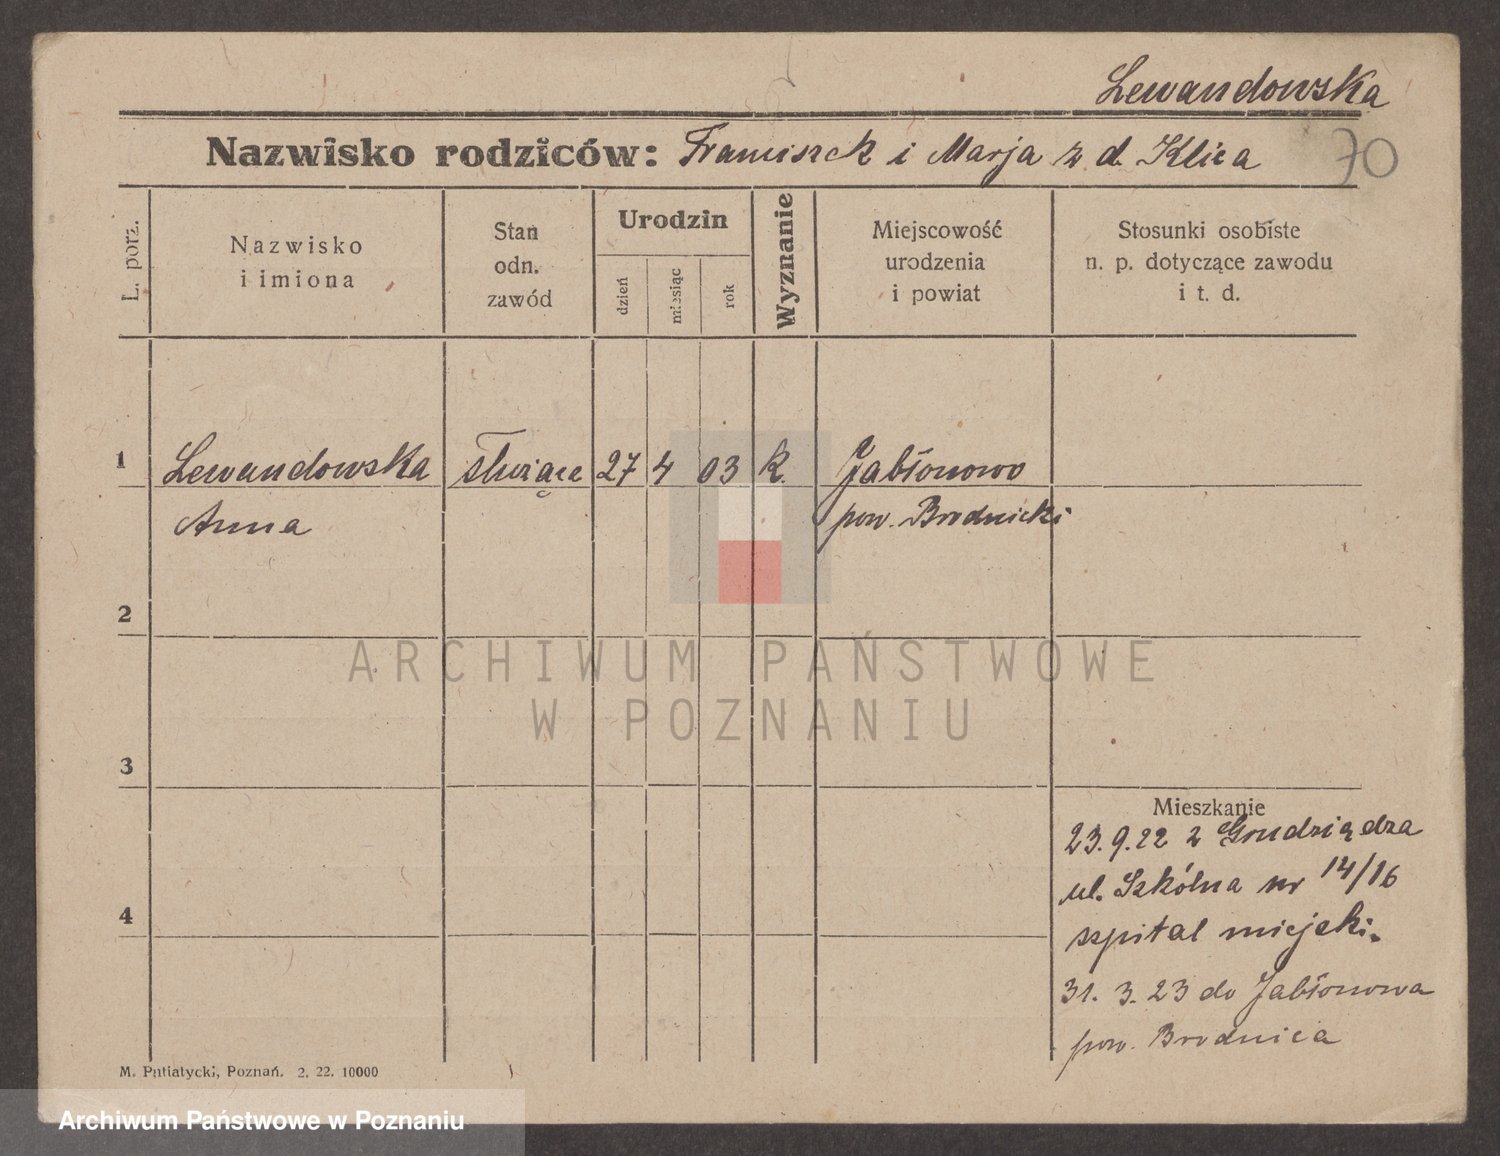 Lewandowska
Nazwisko rodziców: Franciszek i Marja z d. Klica
70
L. porz.
Nazwisko
i imiona
Stan
odn.
zawód
Urodzin
dzień
miesiąc
rok
Wyznanie
Miejscowość
urodzenia
i powiat
Stosunki osobiste
n. p. dotyczące zawodu
i t. d.
1 Lewandowska służąca 27 4 03 k. Jabłonowo
Anna pow. Brodnicki
2
3
4
Mieszkanie
23.9.22 z Grudziądza
ul. Szkólna nr 14/16
szpital miejski.
31. 3. 23 do Jabłonowa
pow. Brodnica
M. Putiatycki, Poznań. 2. 22. 10000
ARCHIWUM PAŃSTWOWE
W POZNANIU
Archiwum Państwowe w Poznaniu